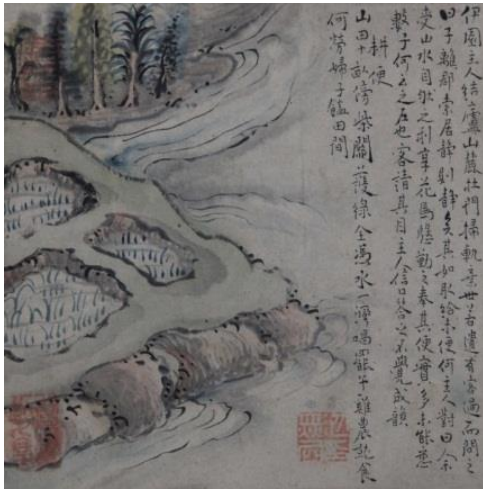 伊園主人結廬山麓杜門掃軌棄世若遺有客過而問之
曰子離群索居靜則靜矣其如取給未便何主人對曰余
受山水自然之利享花鳥慇懃之奉其便實多未能悉
數子何云之左也客請其目主人信口答之不覺成韻
耕便
山田十畝傍柴關護綠全憑水一灣唱罷午雞農就食
何勞婦子饁田間